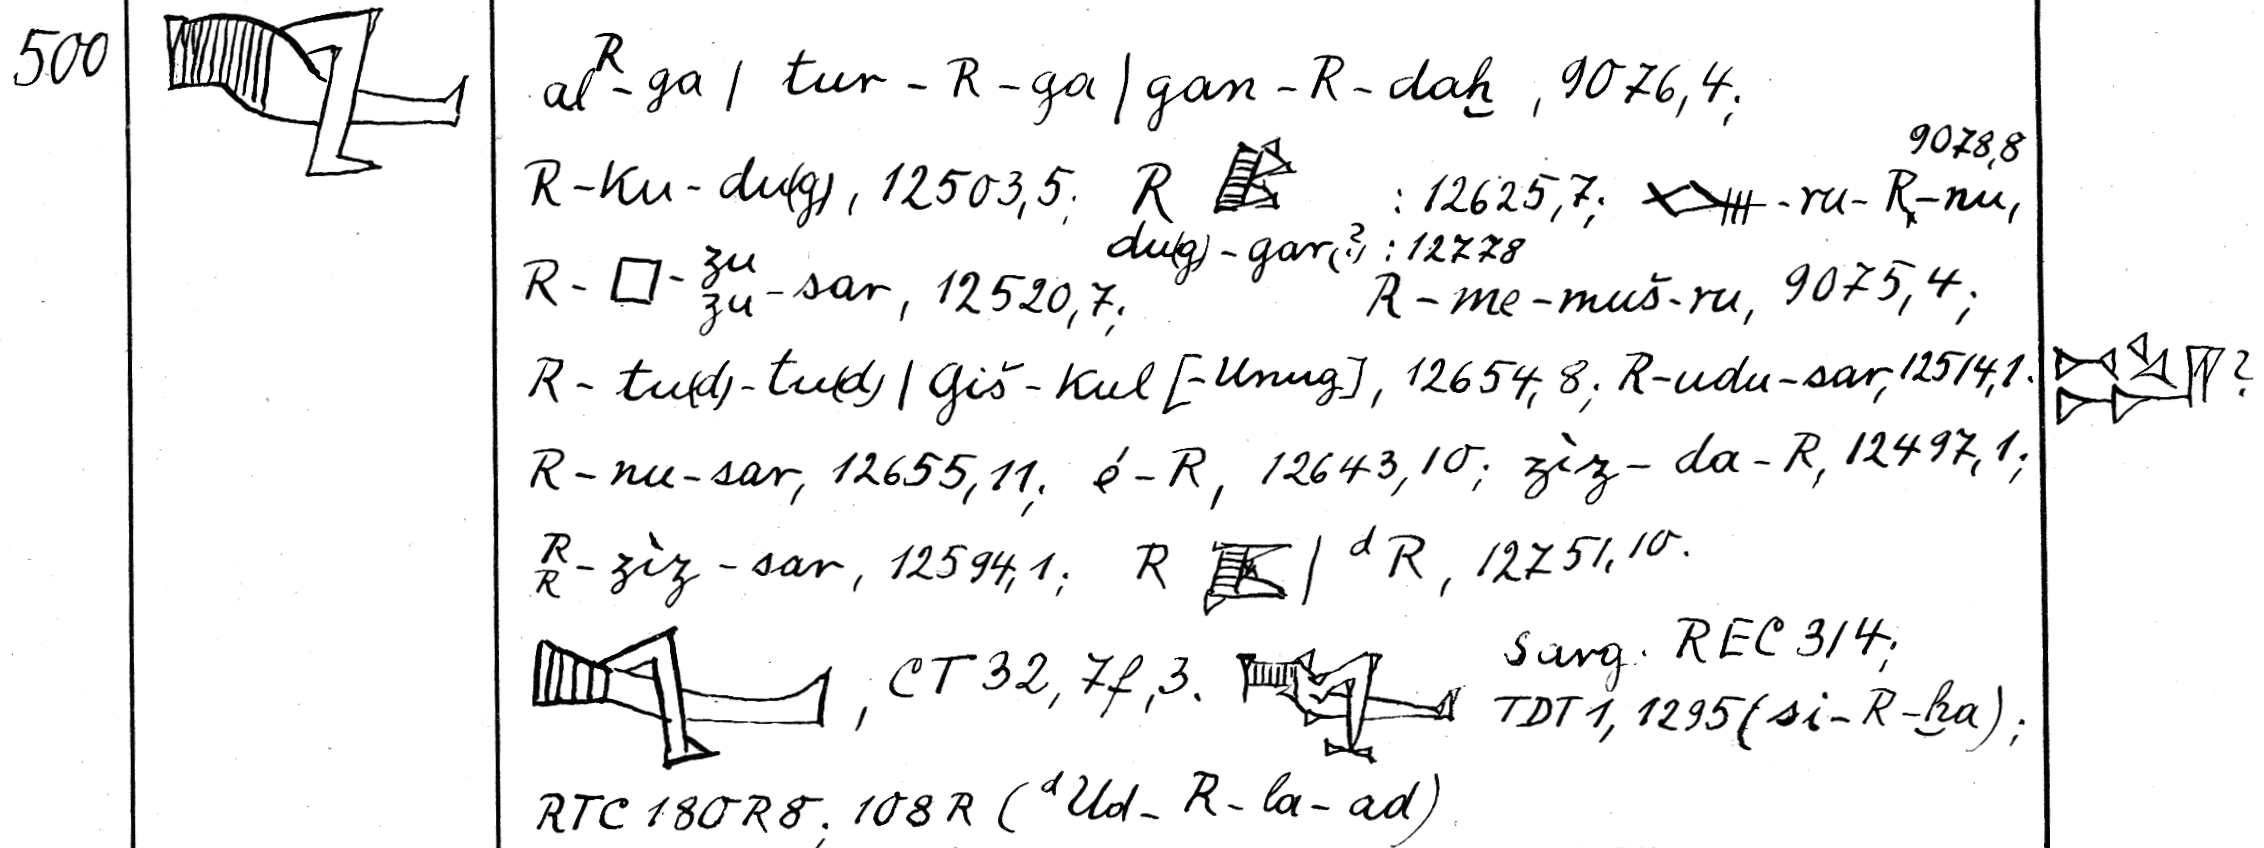 500
alᴿ-ga / tur-R-ga / gan-R-daḫ, 9076,4;
R-ku-du(g), 12503,5; R : 12625,7; -ru-R-nu, 9078,8
du(g)-gar(?) : 12778
R-□-zu zu-sar, 12520,7; R-me-muš-ru, 9075,4;
R-tu(d)-tu(d) / Giš-kul [-Unug], 12654,8; R-udu-sar, 12514,1. ?
R-nu-sar, 12655,11; é-R, 12643,10; zìz-da-R, 12497,1;
R R-zìz-sar, 12594,1; R / ᵈR, 12751,10.
, CT 32, 7f,3. sarg. REC 314;
TDT 1, 1295 (si-R-ḫa);
RTC 180 R8; 108 R (ᵈUd-R-la-ad)